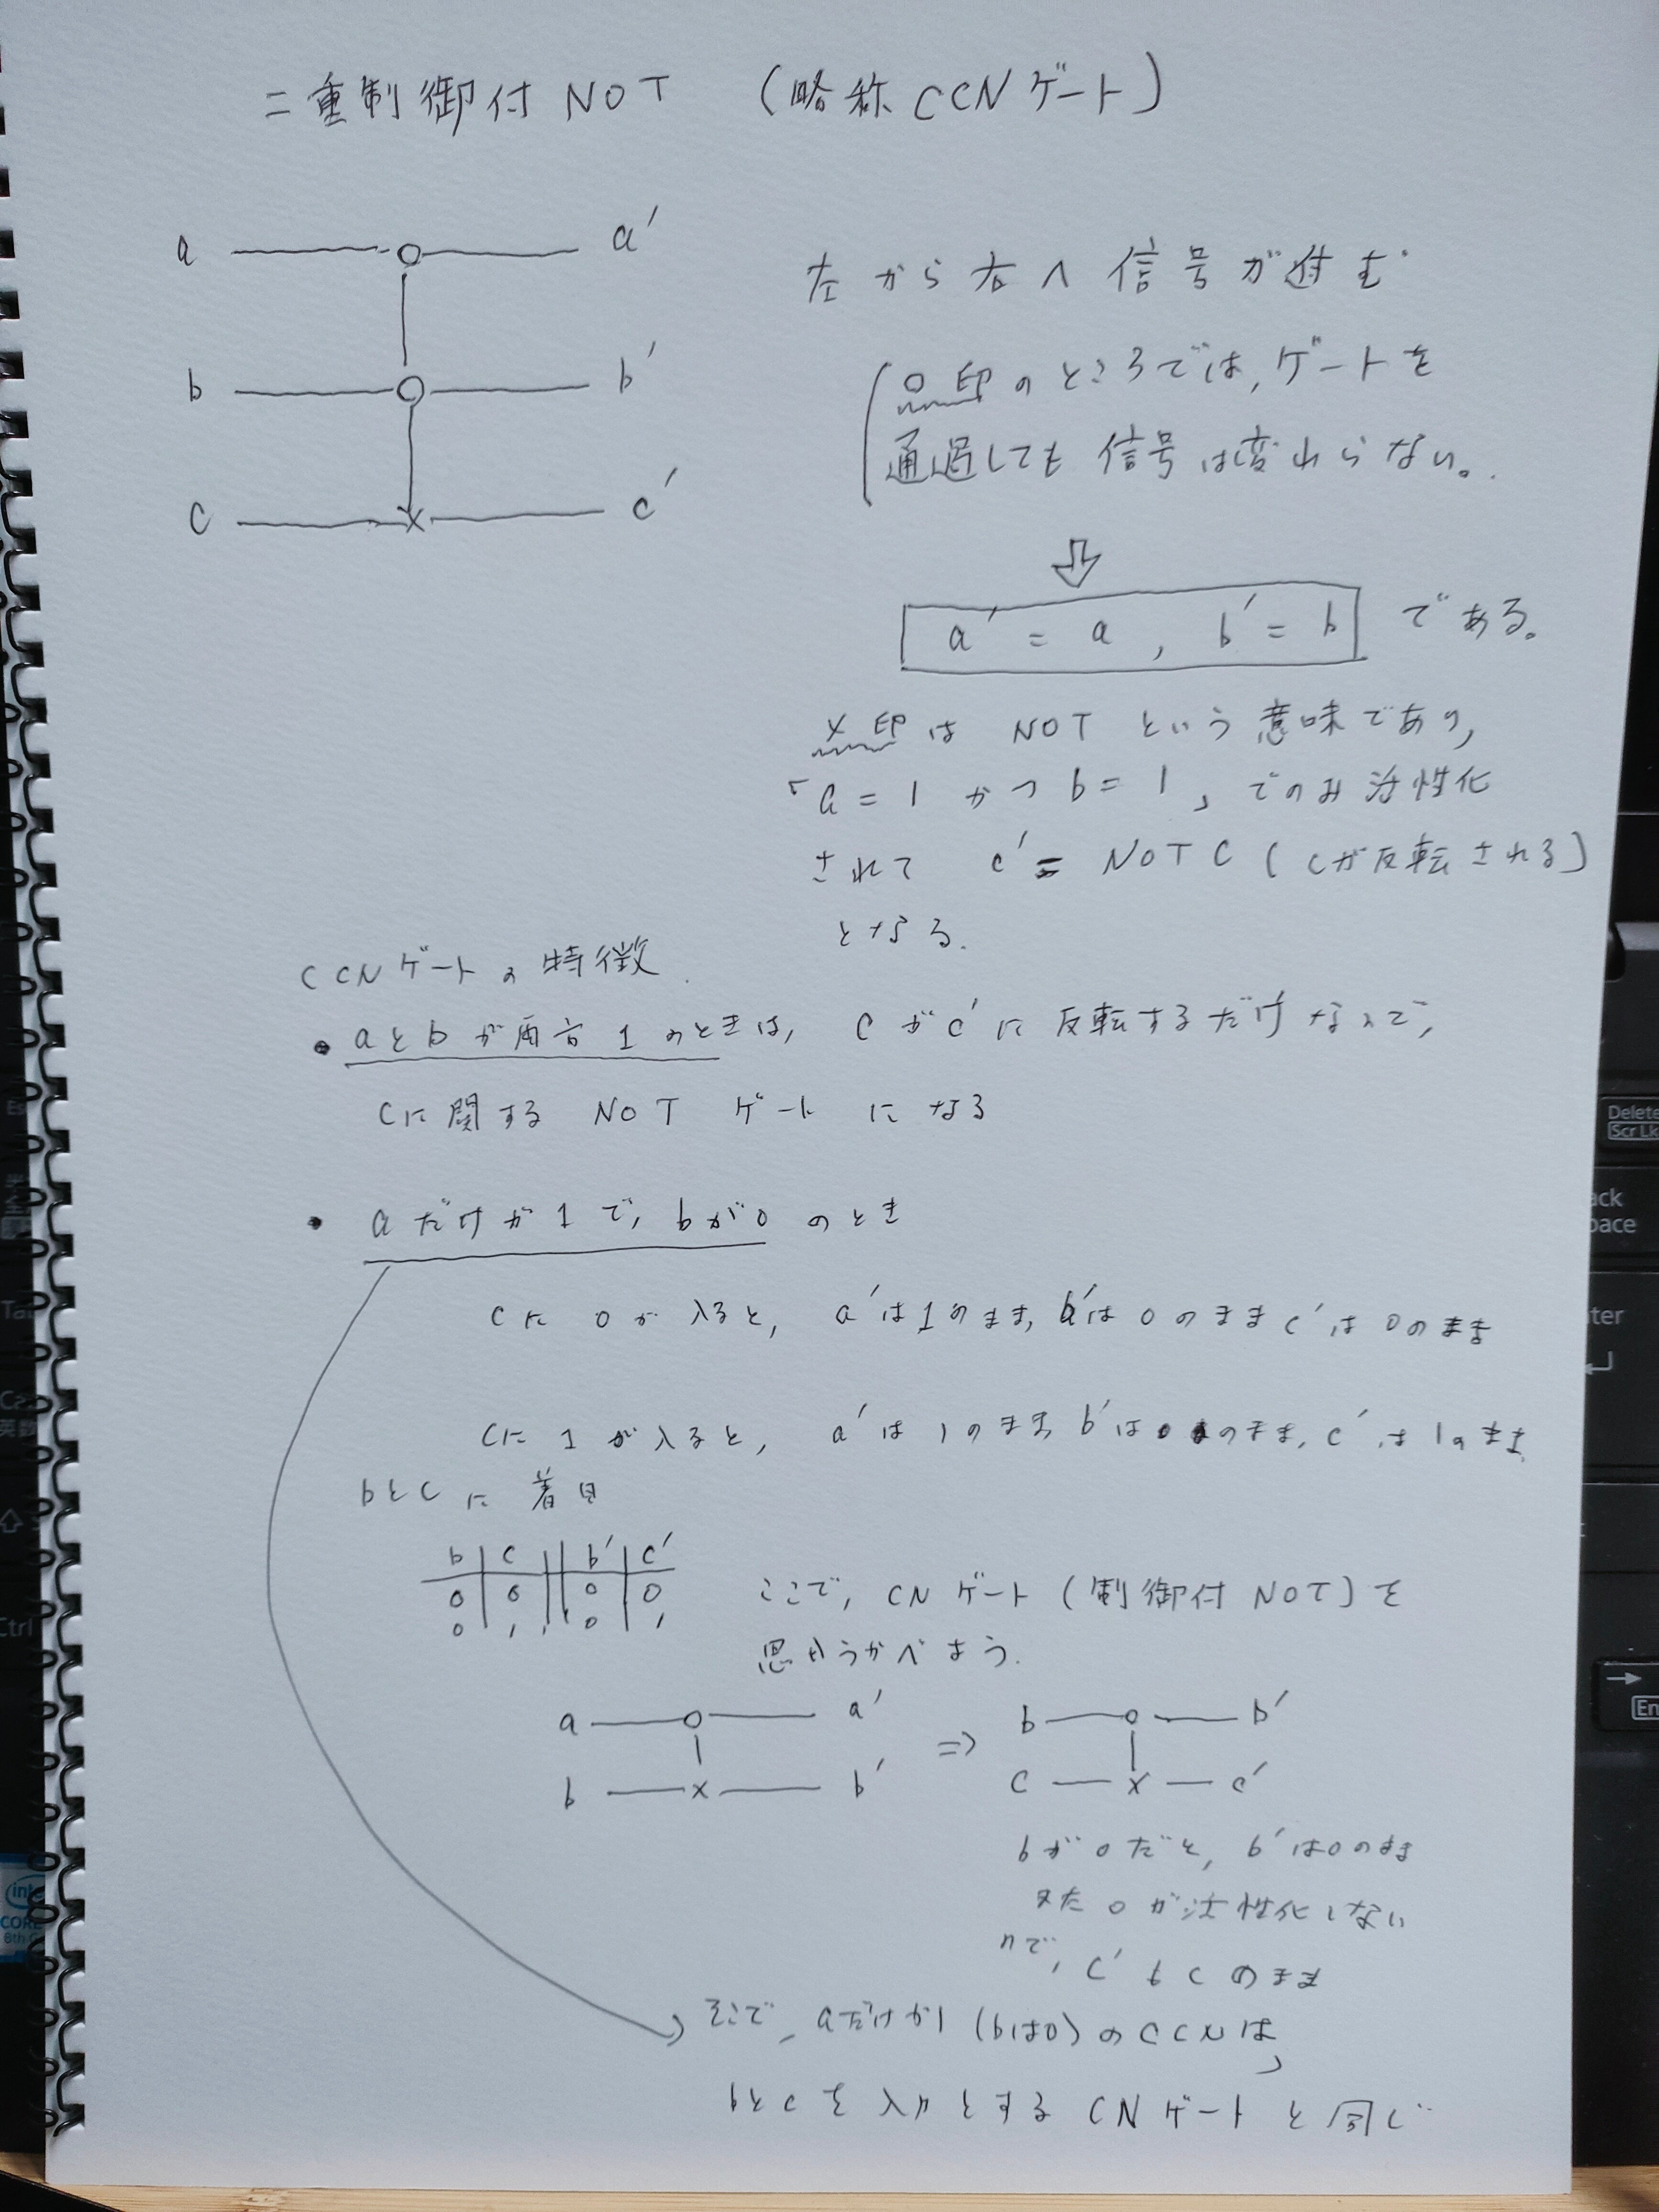 二重制御付NOT (略称CCNゲート)
a a′
b b′
c c′
左から右へ信号が進む
○印のところでは,ゲートを
通過しても信号は変わらない。
⇩
a′ = a , b′ = b である。
×印は NOT という意味であり,
「a = 1 かつ b = 1」でのみ活性化
されて c′ = NOT C (Cが反転される)
となる.
CCNゲートの特徴.
• aとbが両方1のときは, Cがc′に反転するだけなので,
Cに関する NOT ゲートになる
• aだけが1で, bが0 のとき
Cに0が入ると, a′は1のまま, b′は0のまま c′は0のまま
Cに1が入ると, a′は1のまま, b′は0のまま, c′は1のまま
bとCに着目
b c b′ c′
0 0 0 0
0 1 0 1
ここで, CNゲート (制御付NOT) を
思いうかべよう.
a a′ ⇒ b b′
b b′ c c′
bが0だと, b′は0のまま
また0が活性化しない
ので, c′もcのまま
そこで, aだけが1 (bは0) のCCNは,
bとcを入力とする CNゲートと同じ
Delete
Scr Lk
ack
pace
nter
En
Esc
半
全
Tab
Ca
英数
Ctrl
inte
CORE
8th G